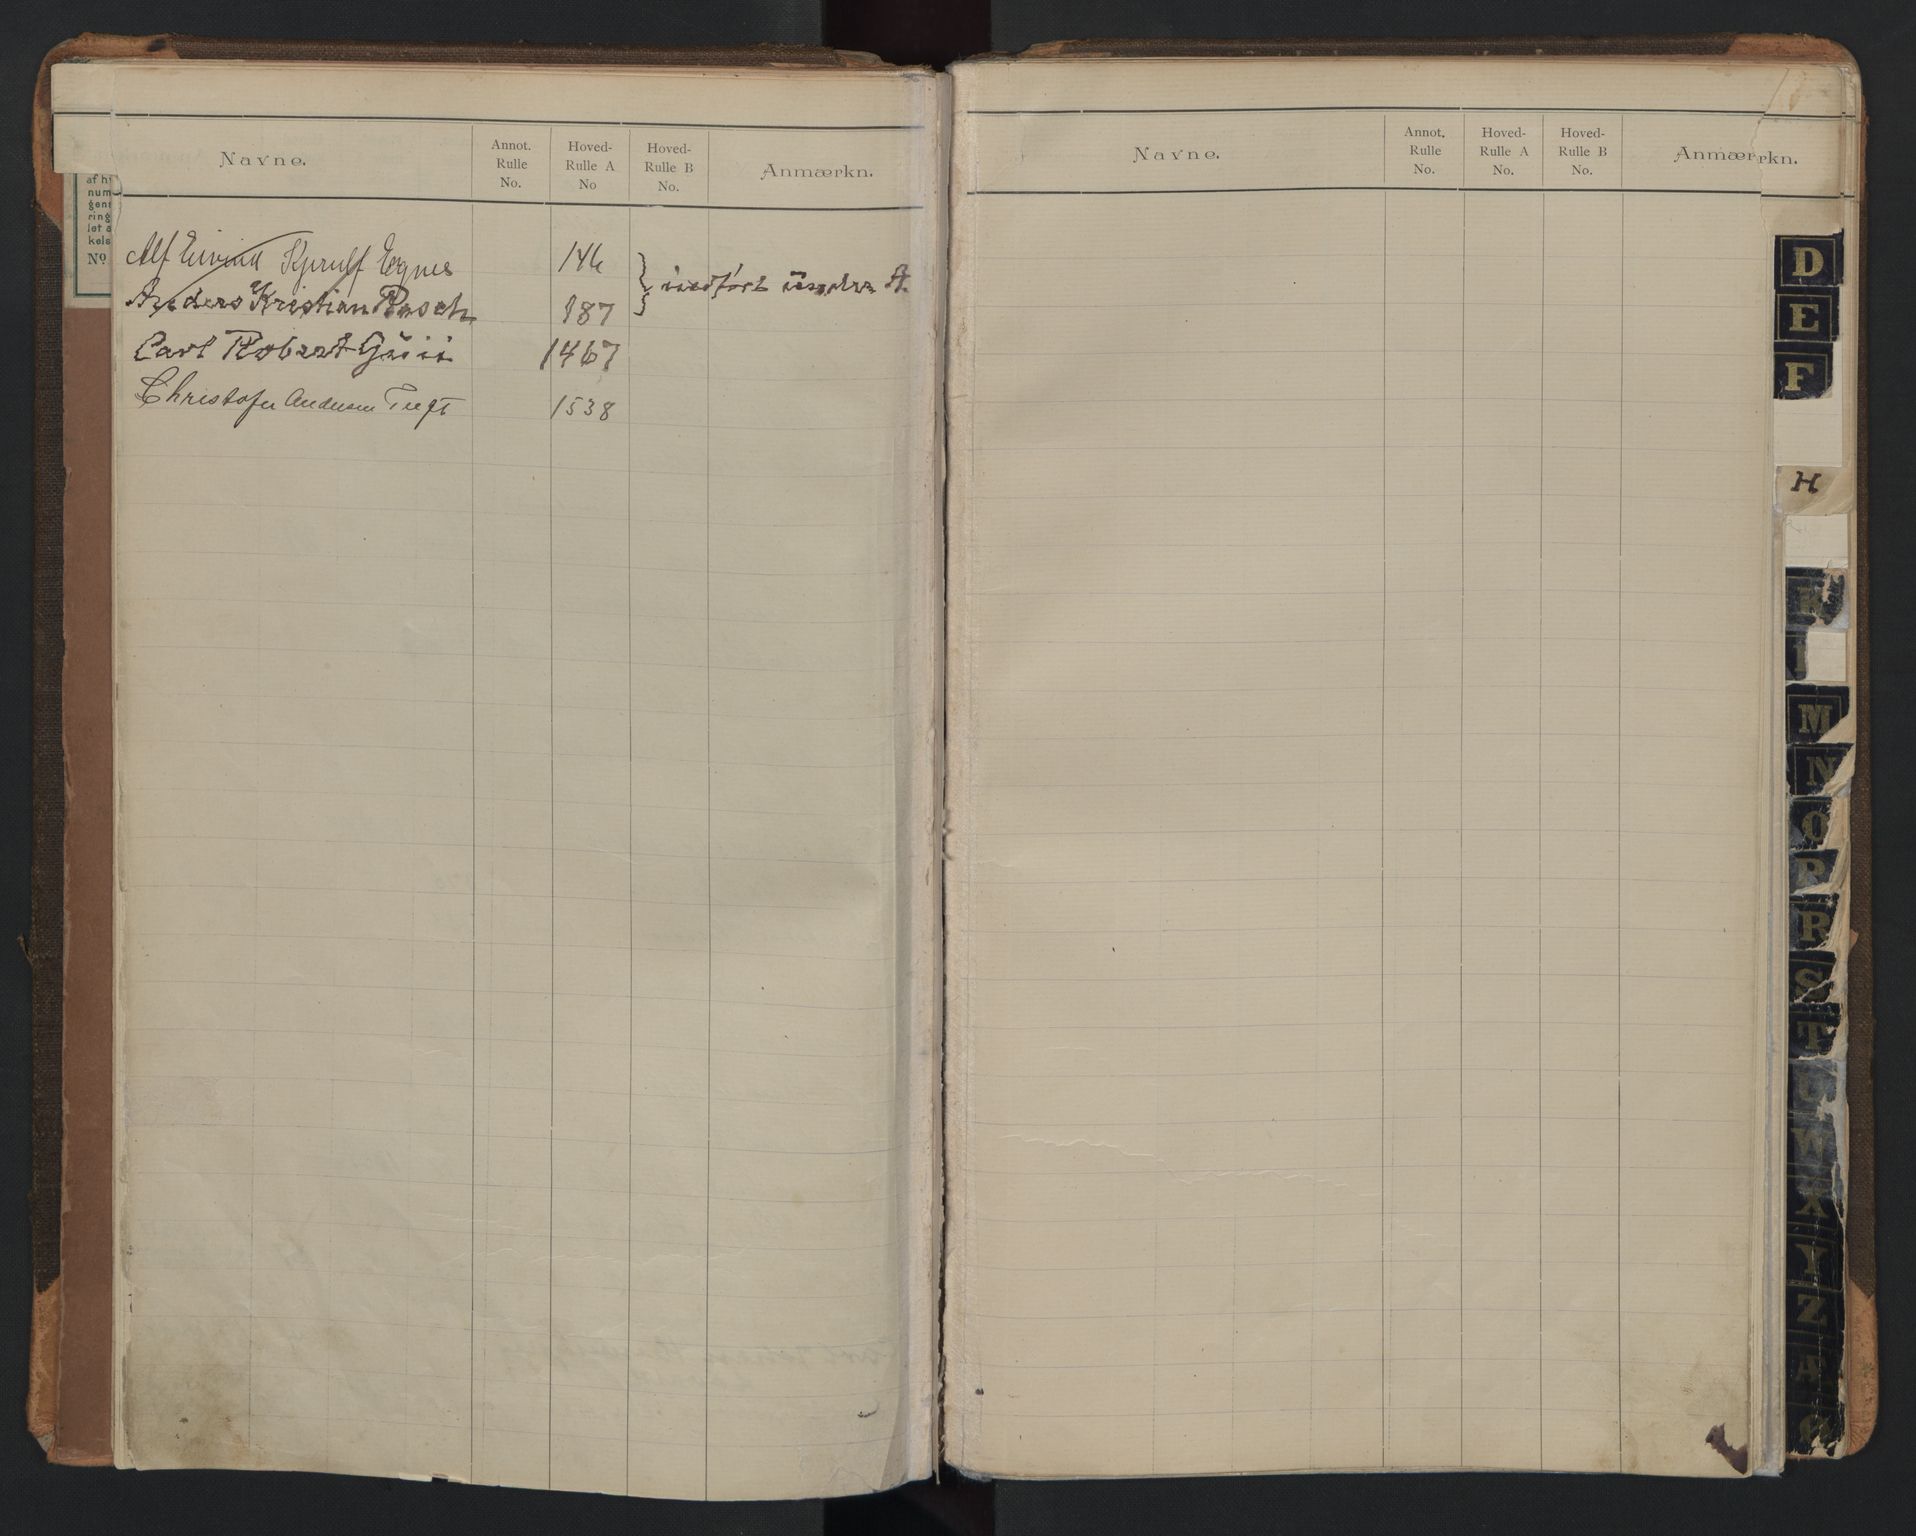 Navne.
Annot. Rulle No.
Hoved- Rulle A No
Hoved- Rulle B No.
Anmærkn.
Alf Eivind Kjerulf Egnes 146
Anders Kristian Rasch 187
indført under A.
Carl Robert 1467
Christofer Andersen 1538
af h
num
gens
ring
let a
kels
No.
Navne.
Annot. Rulle No.
Hoved- Rulle A No.
Hoved- Rulle B No.
Anmærkn.
D
E
F
H
K
M
N
O
P
R
S
T
U
W
X
Y
Z